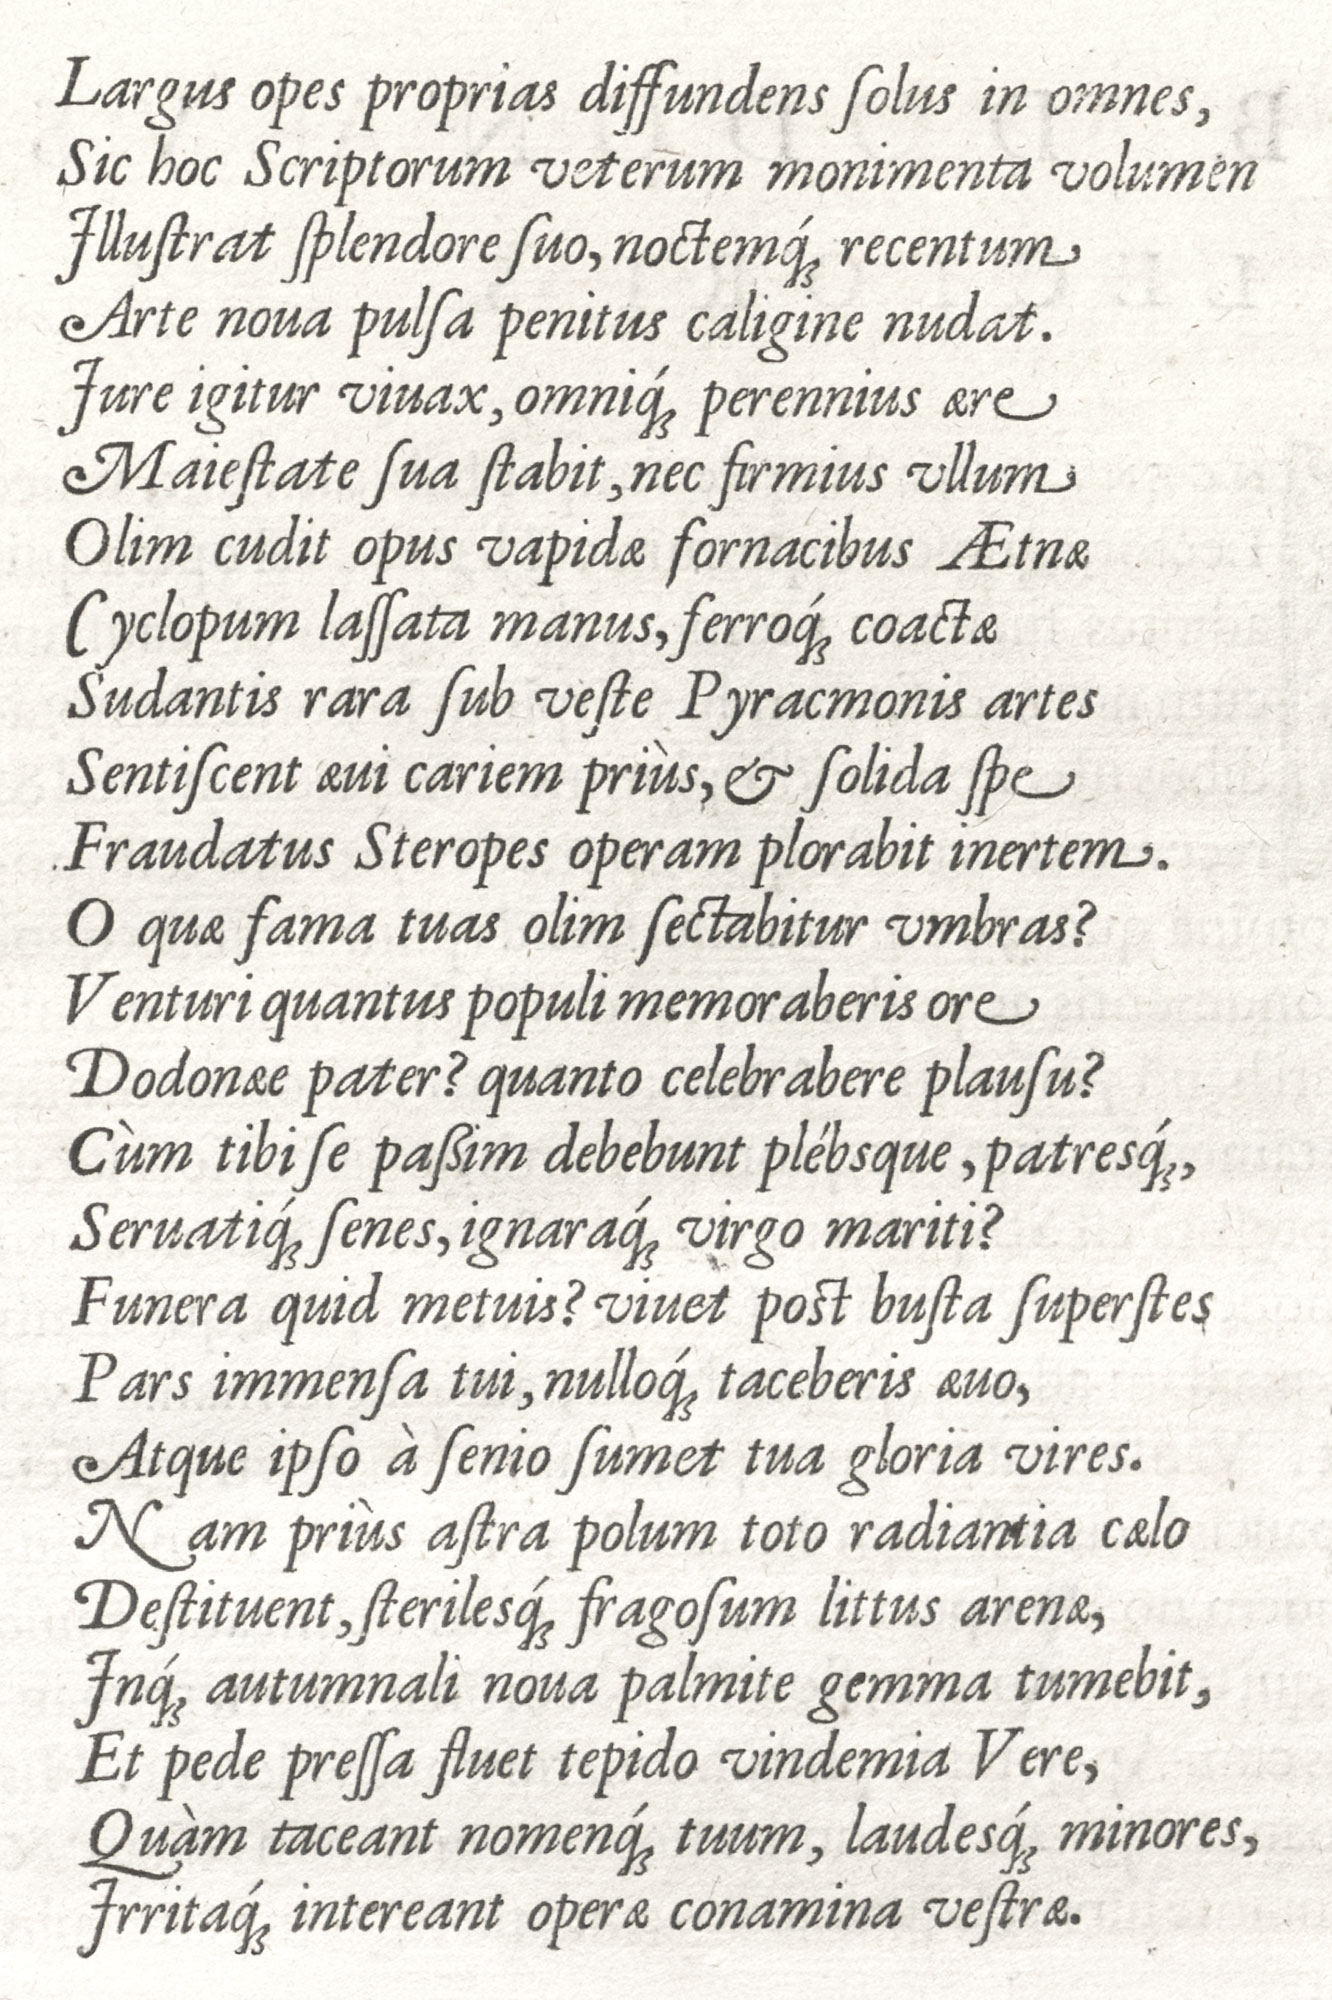 Largus opes proprias diffundens ſolus in omnes,
Sic hoc Scriptorum veterum monimenta volumen
Illuſtrat ſplendore ſuo, noctemq́ꝫ recentum
Arte noua pulſa penitus caligine nudat.
Iure igitur viuax, omniq́ꝫ perennius ære
Maieſtate ſua ſtabit, nec firmius vllum
Olim cudit opus vapidæ fornacibus Ætnæ
Cyclopum laſſata manus, ferroq́ꝫ coactæ
Sudantis rara ſub veſte Pyracmonis artes
Sentiſcent æui cariem priùs, & ſolida ſpe
Fraudatus Steropes operam plorabit inertem.
O quæ fama tuas olim ſectabitur vmbras?
Venturi quantus populi memoraberis ore
Dodonæe pater? quanto celebrabere plauſu?
Cùm tibi ſe paßim debebunt plébsque, patresq́ꝫ,
Seruatiq́ꝫ ſenes, ignaraq́ꝫ virgo mariti?
Funera quid metuis? viuet post buſta ſuperſtes
Pars immenſa tui, nulloq́ꝫ taceberis æuo,
Atque ipſo à ſenio ſumet tua gloria vires.
Nam priùs aſtra polum toto radiantia cælo
Deſtituent, ſterilesq́ꝫ fragoſum littus arenæ,
Inq́ꝫ autumnali noua palmite gemma tumebit,
Et pede preſſa fluet tepido vindemia Vere,
Quàm taceant nomenq́ꝫ tuum, laudesq́ꝫ minores,
Irritaq́ꝫ intereant operæ conamina veſtræ.